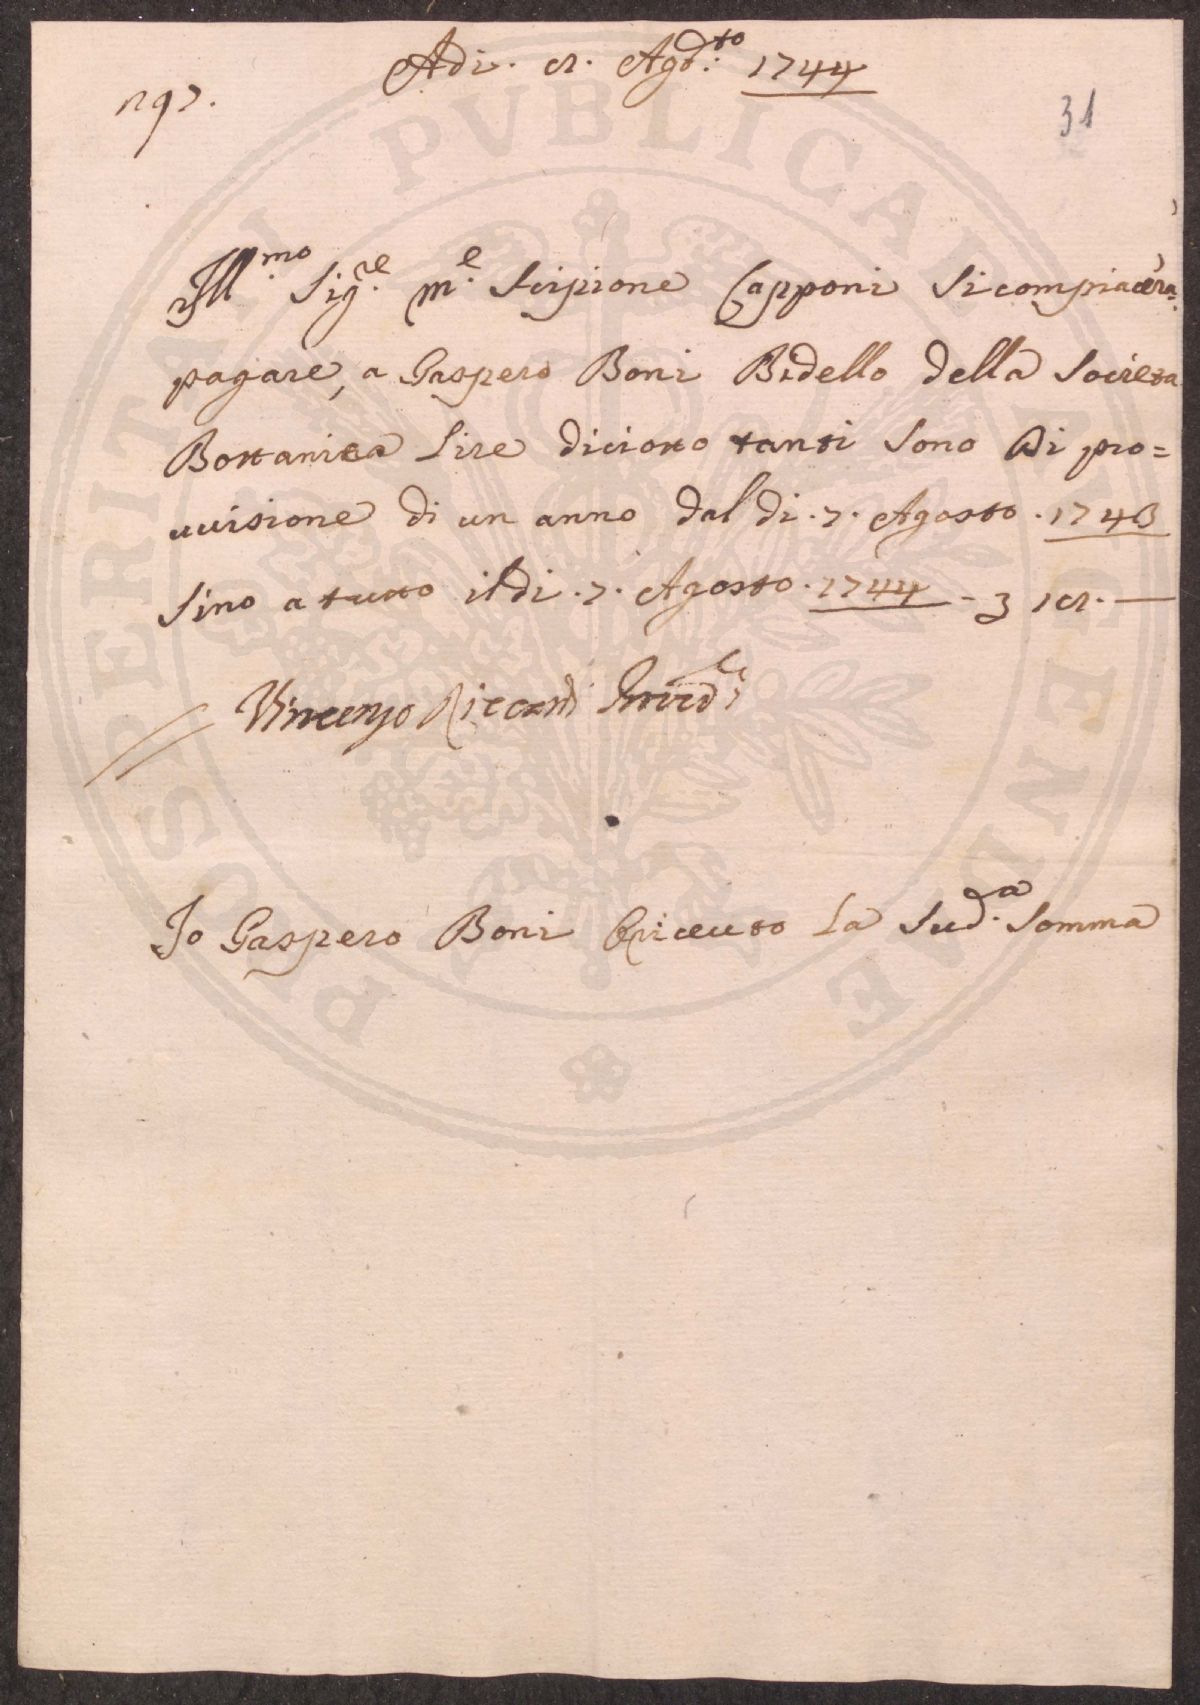 Adi. 8. Agō.to 1744
n 97.
31
Ill.mo Sig.re M.e Scipione Capponi si compiacerà
pagare, a Gaspero Boni Bidello della Societa
Bottanica Lire diciotto tanti sono di pro=
uuisione di un anno dal di .7. Agosto . 1743
sino a tutto il di .7. Agosto . 1744 - 18. —
Vincenzo Riccardi
Io Gaspero Boni ò riceuuto la Sud.a Somma
PVBLICAE PROSPERITATI